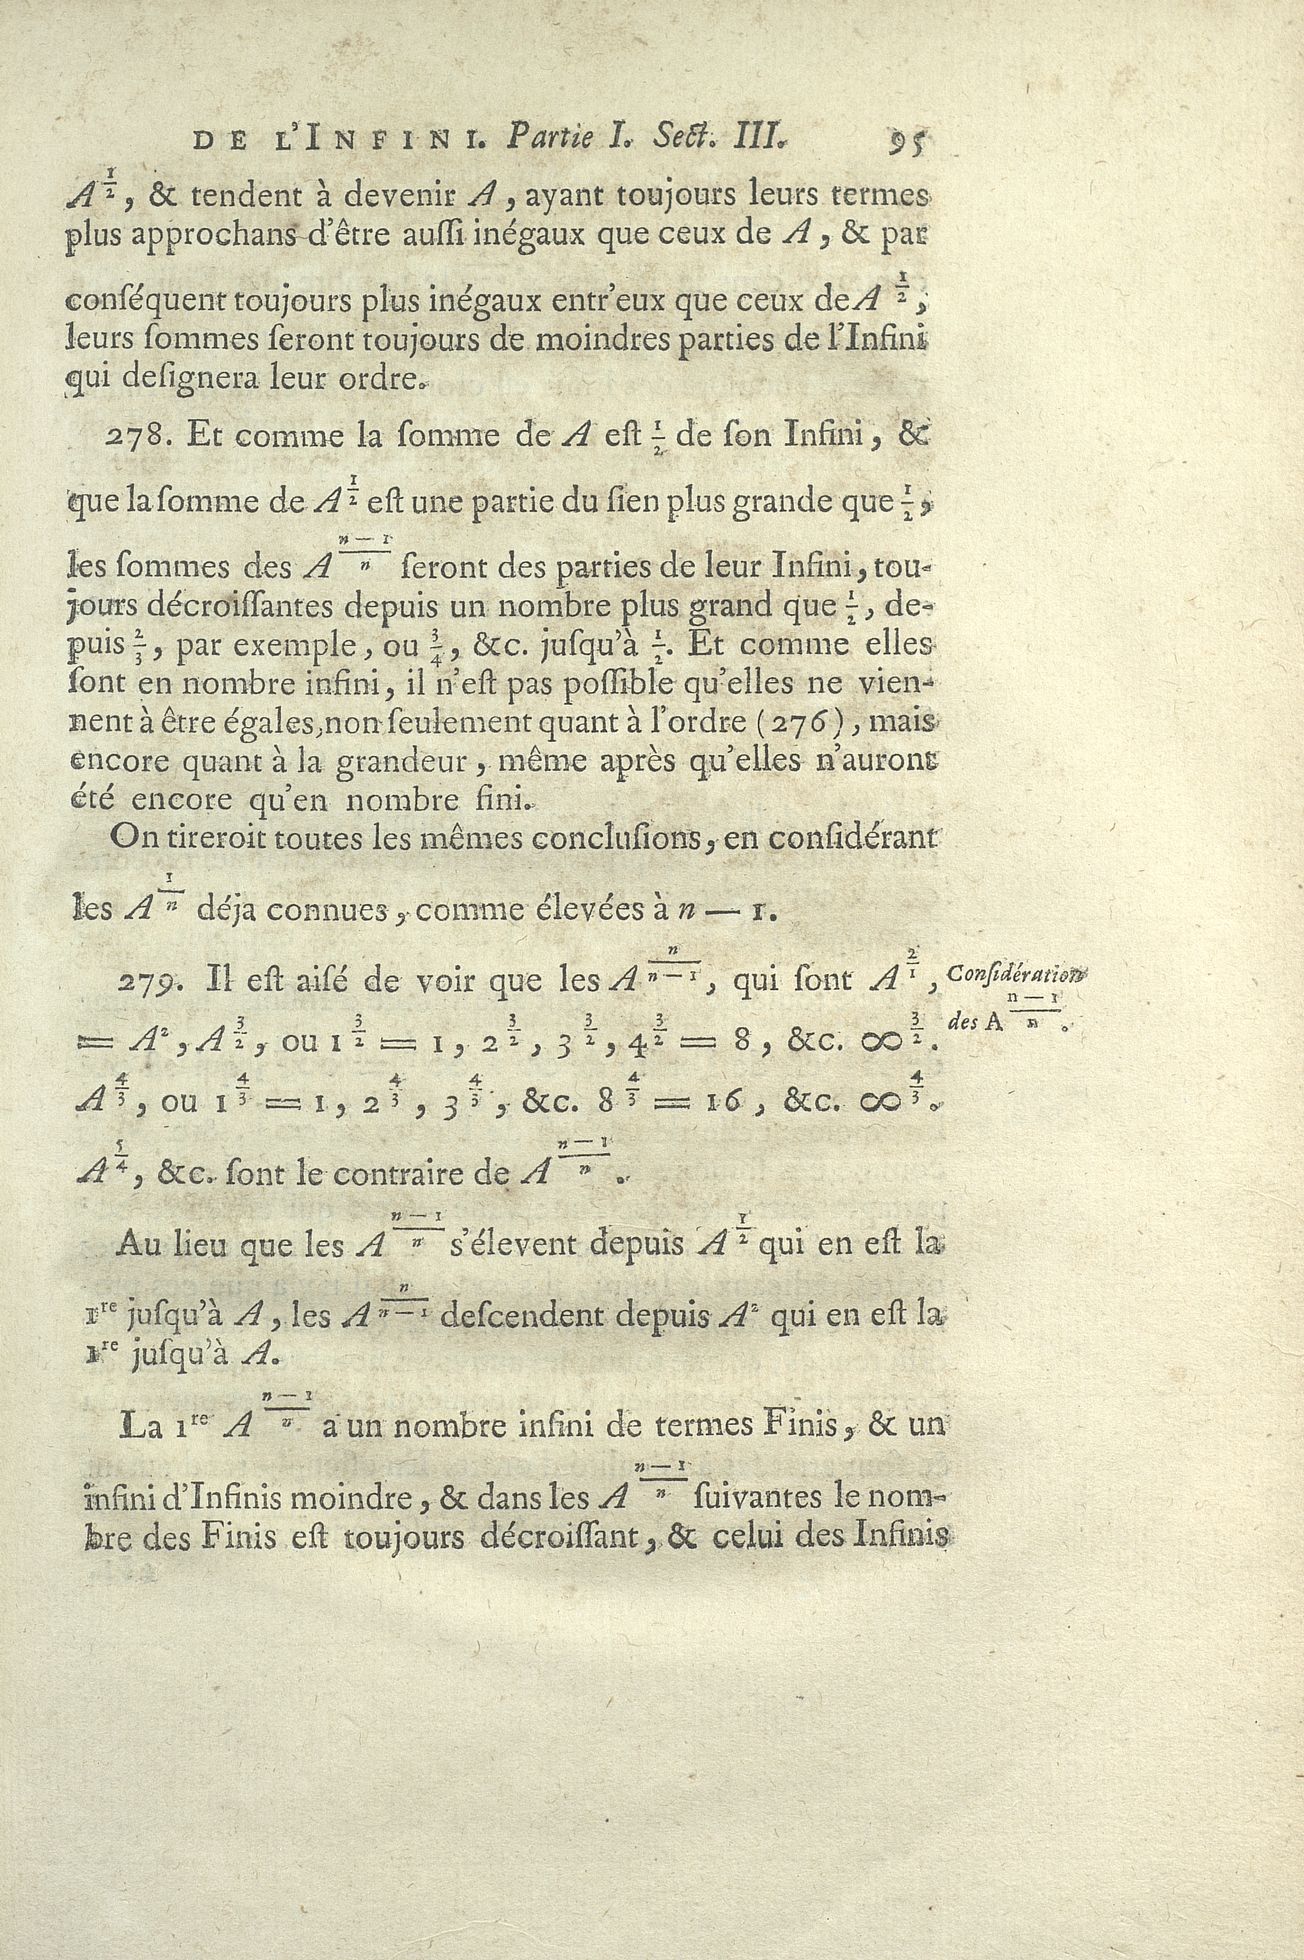 DE L'INFINI. Partie I. Sect. III. 95
A^{1/2}, & tendent à devenir A, ayant toujours leurs termes
plus approchans d'être auſſi inégaux que ceux de A, & par
conſéquent toujours plus inégaux entr'eux que ceux de A^{1/2},
leurs ſommes ſeront toujours de moindres parties de l'Infini
qui deſignera leur ordre.
278. Et comme la ſomme de A eſt 1/2 de ſon Infini, &
que la ſomme de A^{1/2} eſt une partie du ſien plus grande que 1/2,
les ſommes des A^{\frac{n-1}{n}} ſeront des parties de leur Infini, tou-
jours décroiſſantes depuis un nombre plus grand que 1/2, de-
puis 2/3, par exemple, ou 3/4, &c. juſqu'à 1/2. Et comme elles
ſont en nombre infini, il n'eſt pas poſſible qu'elles ne vien-
nent à être égales, non ſeulement quant à l'ordre (276), mais
encore quant à la grandeur, même après qu'elles n'auront
été encore qu'en nombre fini.
On tireroit toutes les mêmes concluſions, en conſidérant
les A^{\frac{1}{n}} déja connues, comme élevées à n — 1.
279. Il eſt aiſé de voir que les A^{\frac{n}{n-1}}, qui ſont A^{2/1},
= A², A^{3/2}, ou 1^{3/2} = 1, 2^{3/2}, 3^{3/2}, 4^{3/2} = 8, &c. ∞^{3/2}.
A^{4/3}, ou 1^{4/3} = 1, 2^{4/3}, 3^{4/3}, &c. 8^{4/3} = 16, &c. ∞^{4/3}.
A^{5/4}, &c. ſont le contraire de A^{\frac{n-1}{n}}.
Au lieu que les A^{\frac{n-1}{n}} s'élevent depuis A^{1/2} qui en eſt la
1re juſqu'à A, les A^{\frac{n}{n-1}} deſcendent depuis A² qui en eſt la
1re juſqu'à A.
La 1re A^{\frac{n-1}{n}} a un nombre infini de termes Finis, & un
infini d'Infinis moindre, & dans les A^{\frac{n-1}{n}} ſuivantes le nom-
bre des Finis eſt toujours décroiſſant, & celui des Infinis
Conſidération
des A^{\frac{n-1}{n}}.